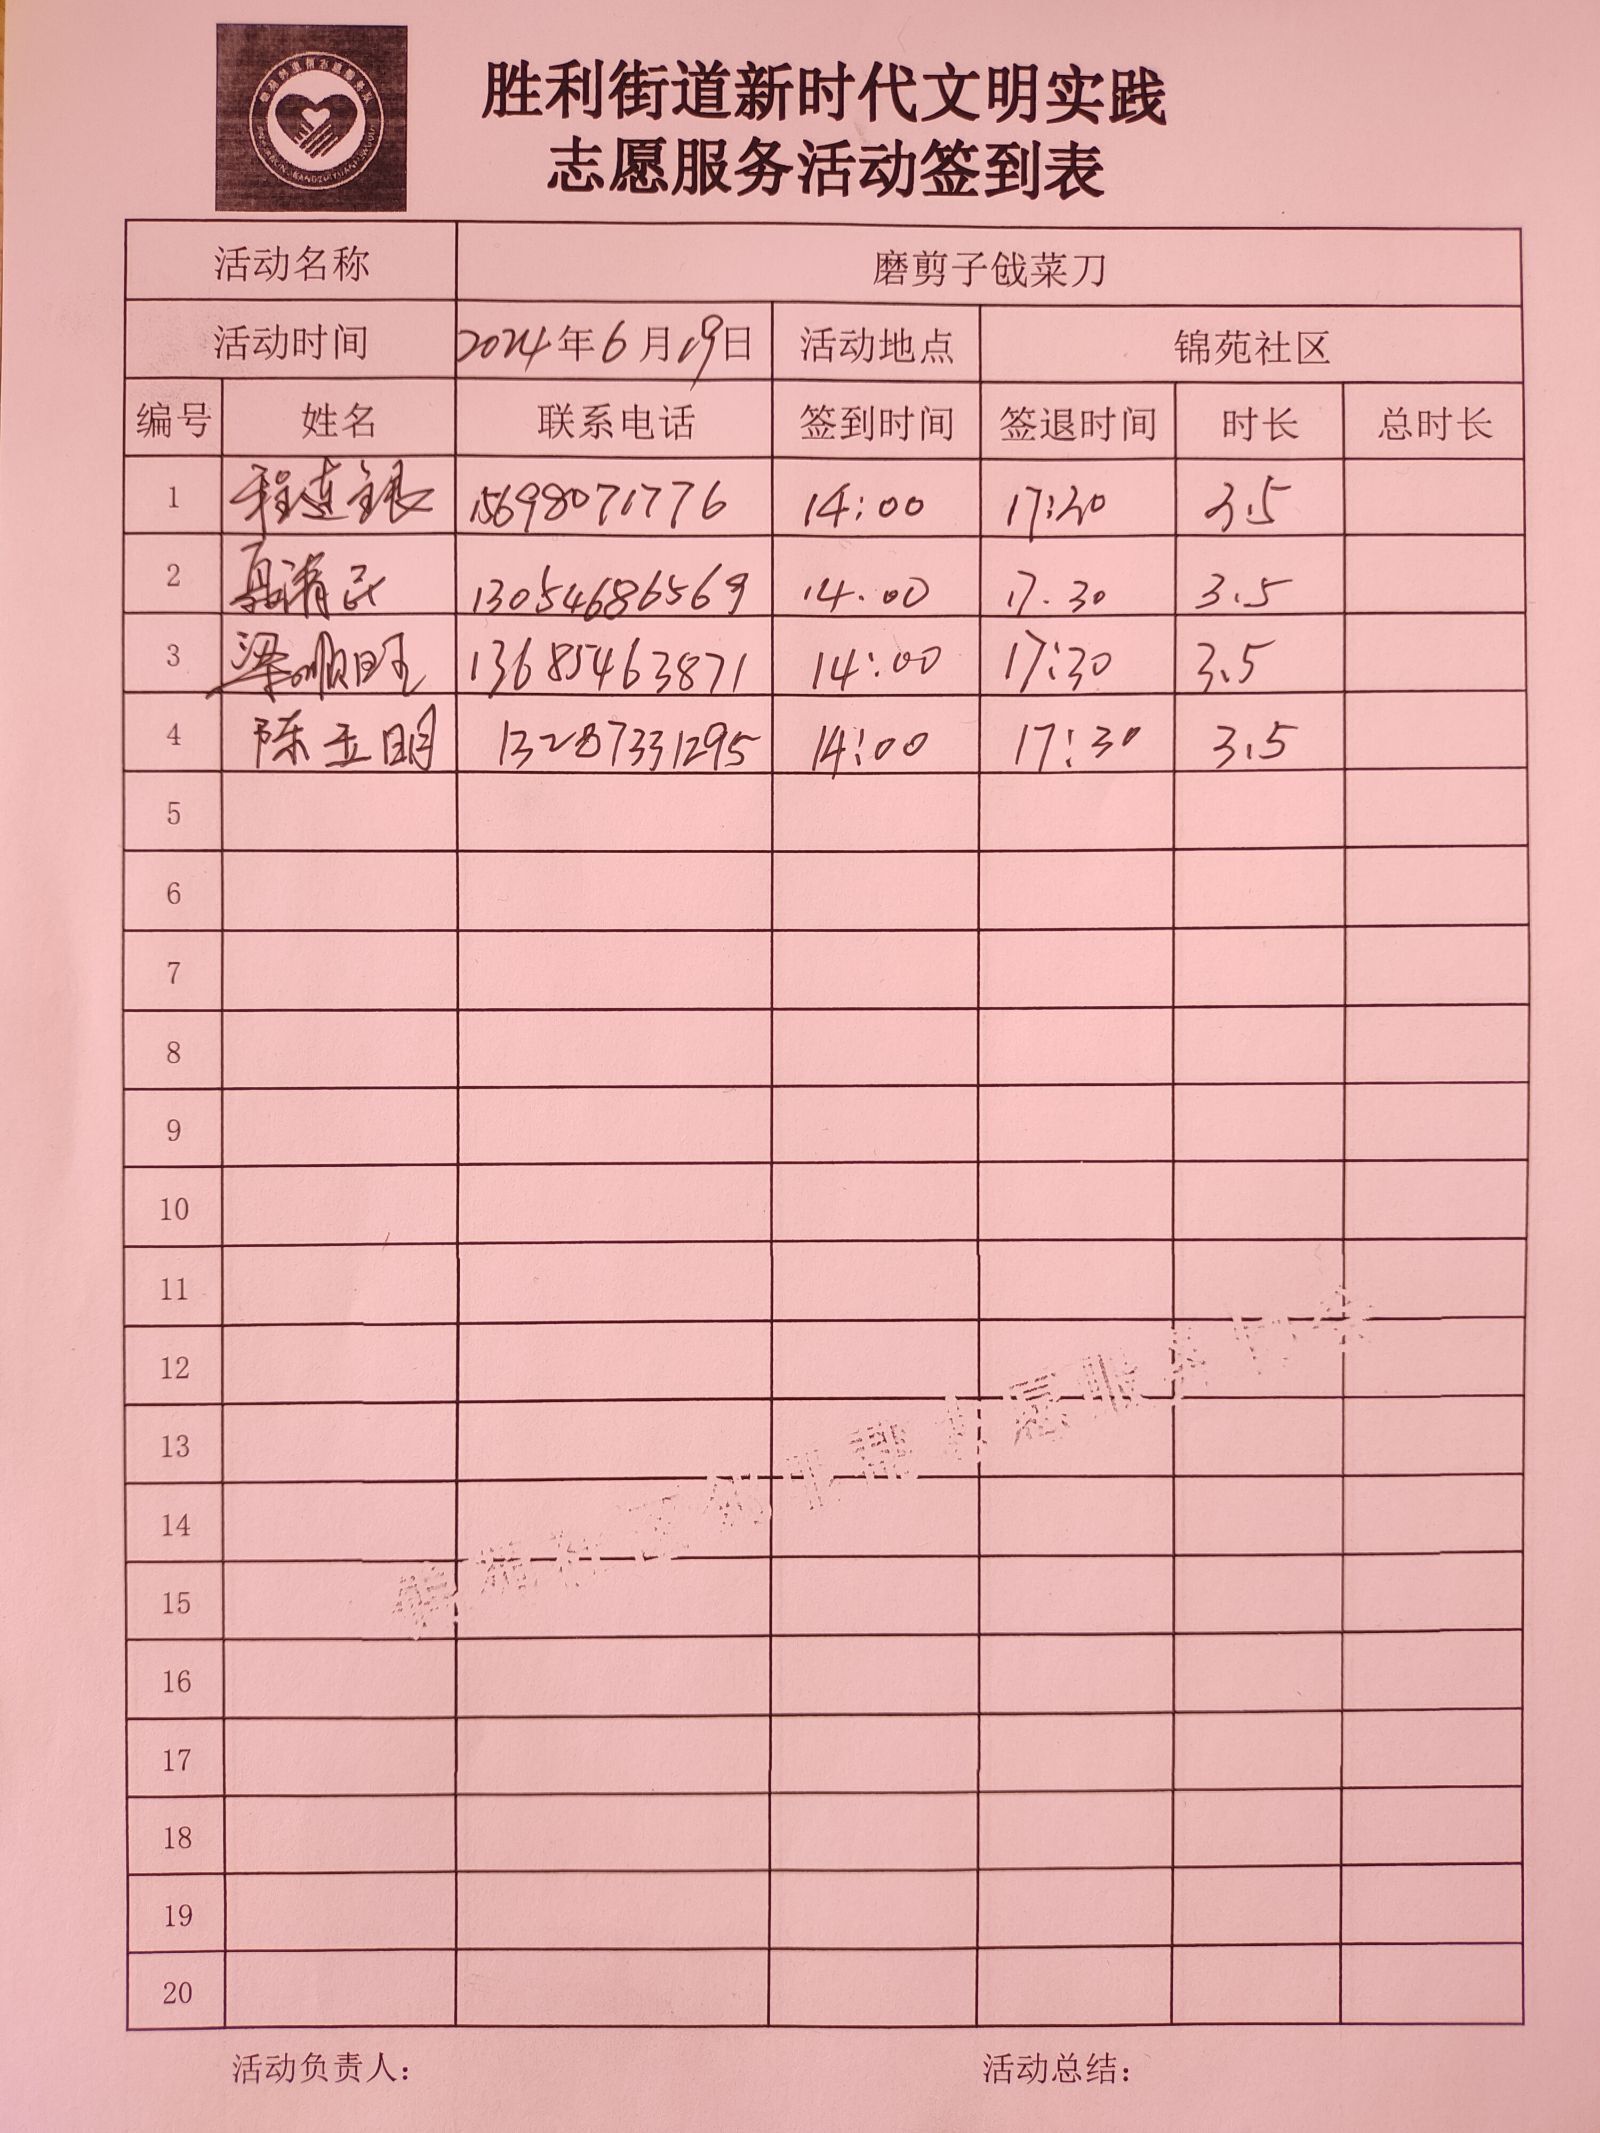 胜利街道新时代文明实践
志愿服务活动签到表
活动名称 磨剪子戗菜刀
活动时间 2024年6月19日 活动地点 锦苑社区
编号 姓名 联系电话 签到时间 签退时间 时长 总时长
1 程连银 15698071776 14:00 17:30 3.5
2 13054686569 14:00 17.30 3.5
3 梁顺旺 13685463871 14:00 17:30 3.5
4 陈玉明 13287331295 14:00 17:30 3.5
5
6
7
8
9
10
11
12
13
14
15
16
17
18
19
20
活动负责人： 活动总结：